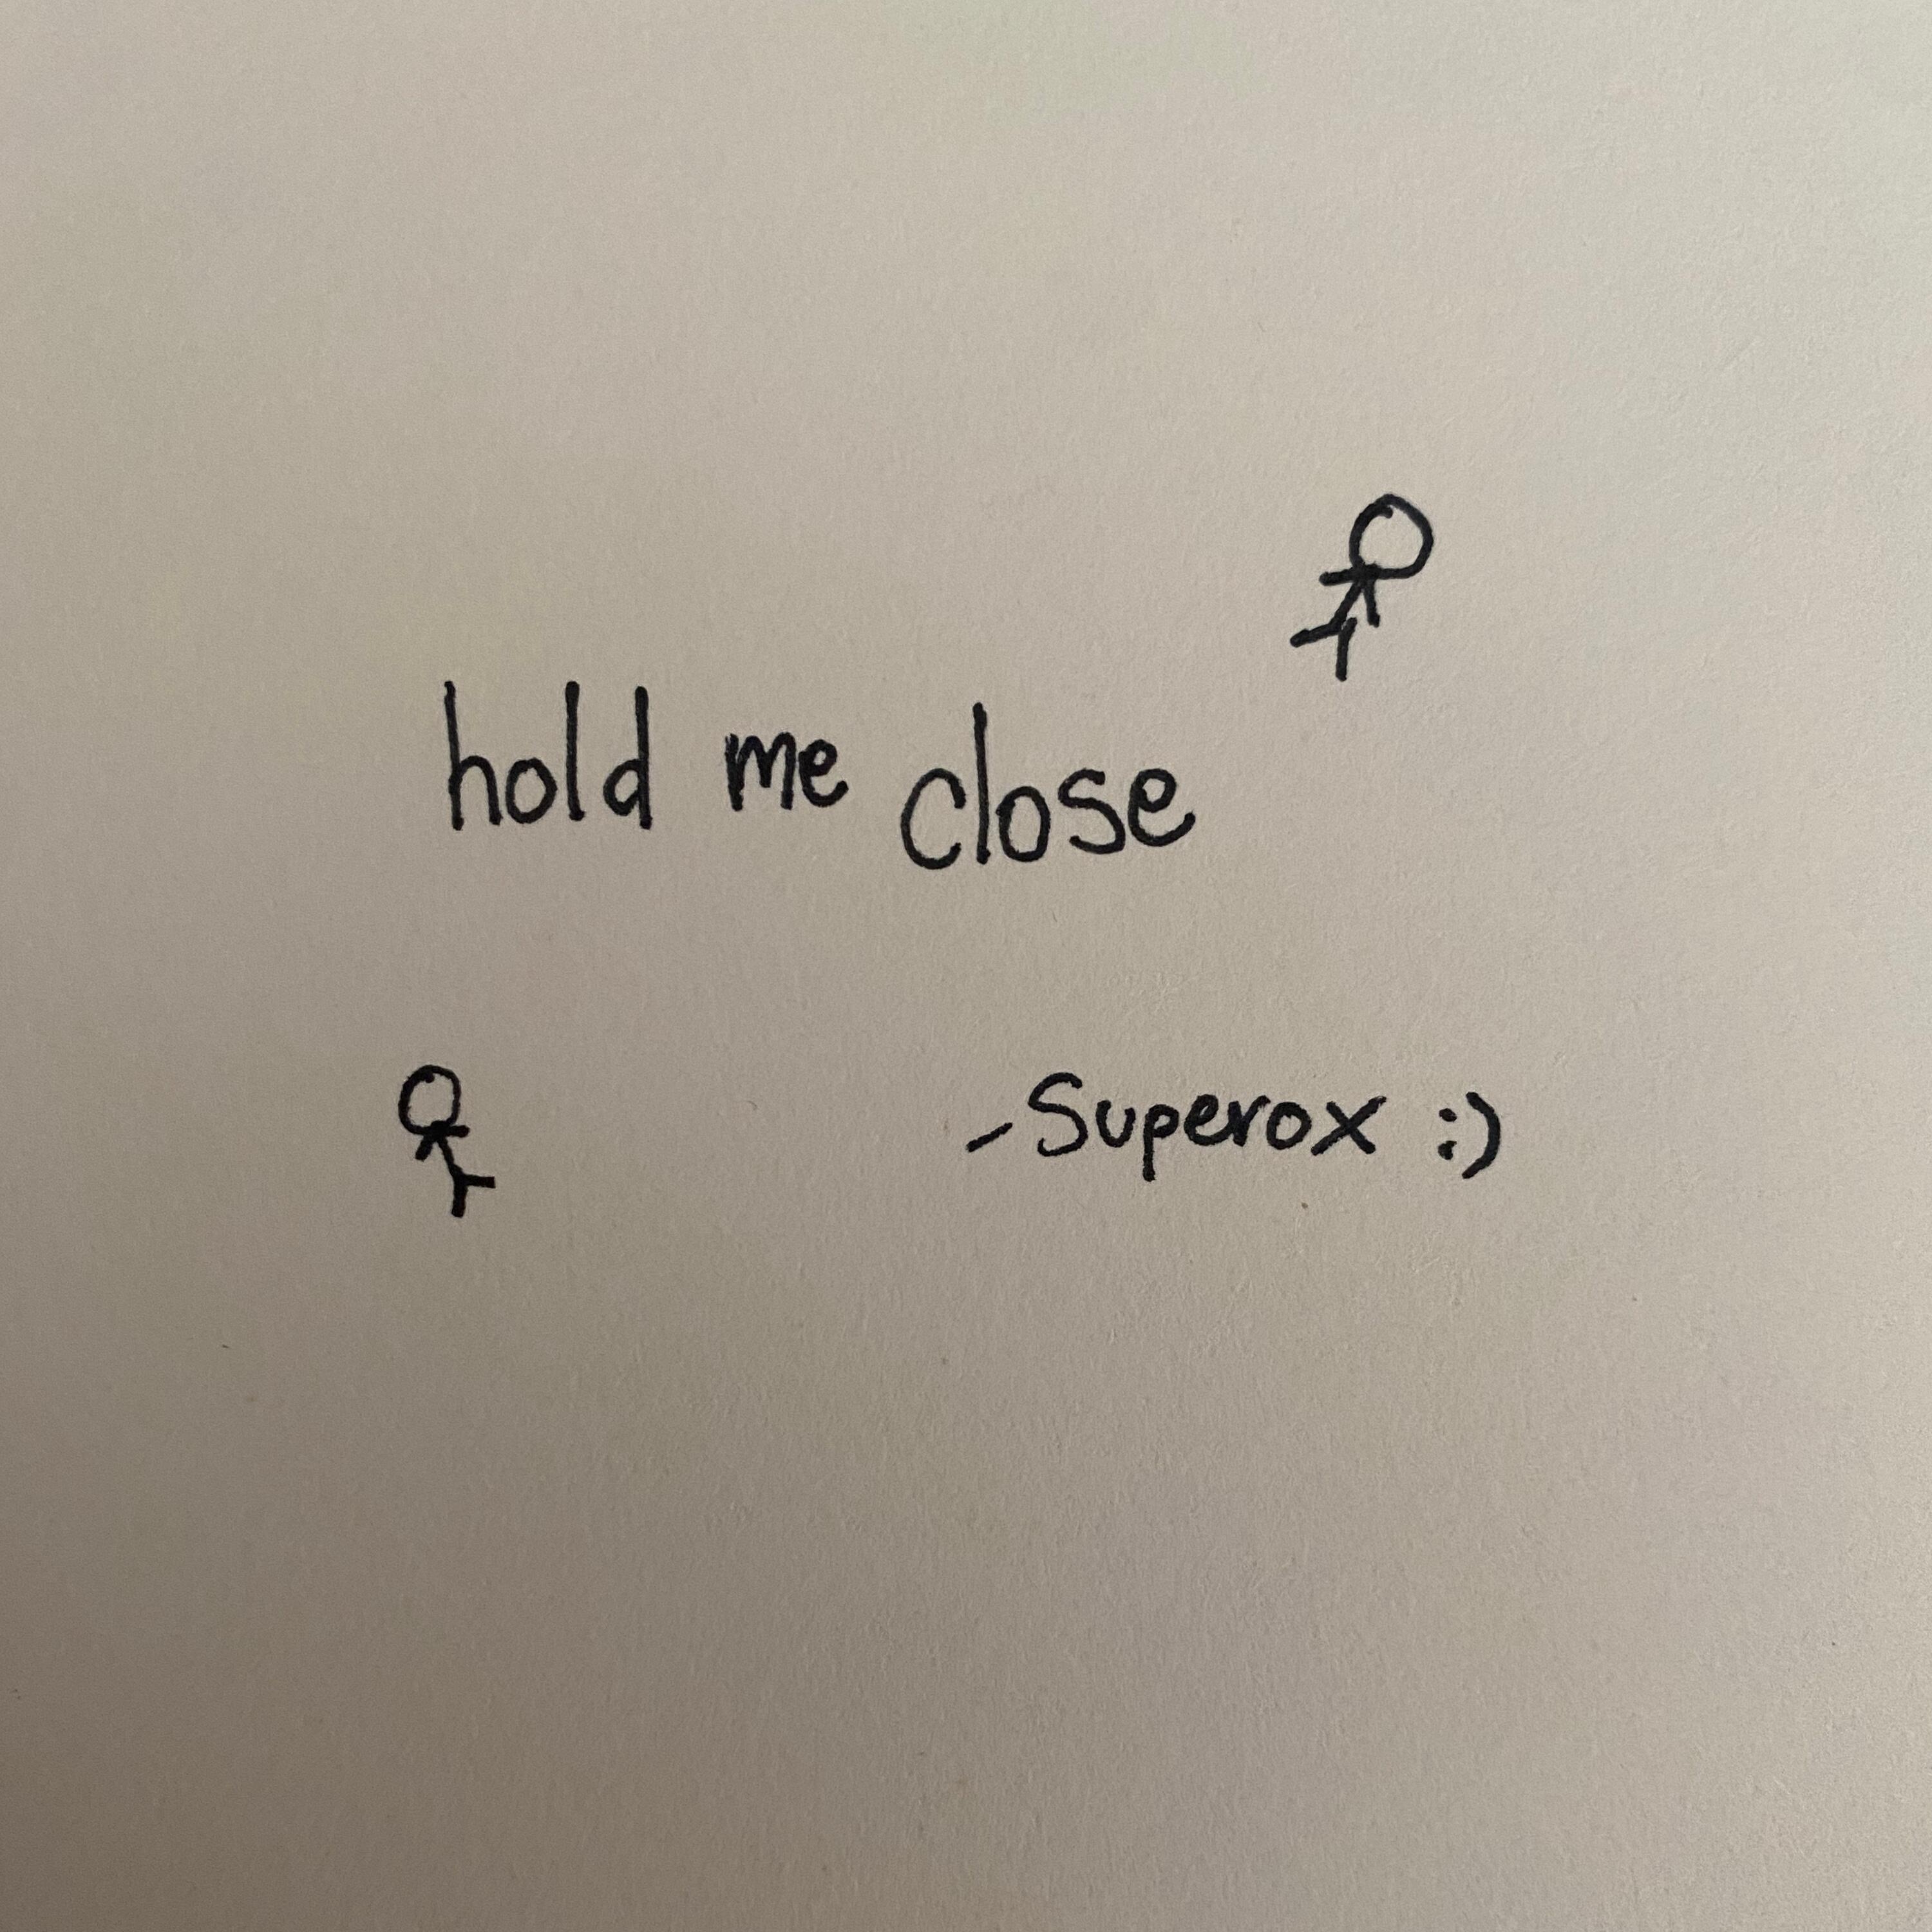 hold me close
-Superox :)